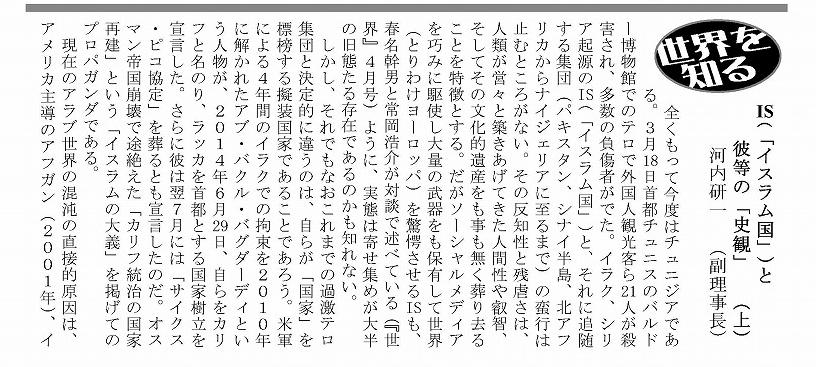 世界を
知る
IS(「イスラム国」)と
彼等の「史観」 (上)
河内研一 (副理事長)
全くもって今度はチュニジアであ
る。3月18日首都チュニスのバルド
ー博物館でのテロで外国人観光客ら21人が殺
害され、多数の負傷者がでた。イラク、シリ
ア起源のIS(「イスラム国」)と、それに追随
する集団(パキスタン、シナイ半島、北アフ
リカからナイジェリアに至るまで)の蛮行は
止むところがない。その反知性と残虐さは、
人類が営々と築きあげてきた人間性や叡智、
そしてその文化的遺産をも事も無く葬り去る
ことを特徴とする。だがソーシャルメディア
を巧みに駆使し大量の武器をも保有して世界
(とりわけヨーロッパ)を驚愕させるISも、
春名幹男と常岡浩介が対談で述べている(『世
界』4月号)ように、実態は寄せ集めが大半
の旧態たる存在であるのかも知れない。
しかし、それでもなおこれまでの過激テロ
集団と決定的に違うのは、自らが「国家」を
標榜する擬装国家であることであろう。米軍
による4年間のイラクでの拘束を2010年
に解かれたアブ・バクル・バグダーディとい
う人物が、2014年6月29日、自らをカリ
フと名のり、ラッカを首都とする国家樹立を
宣言した。さらに彼は翌7月には「サイクス
・ピコ協定」を葬るとも宣言したのだ。オス
マン帝国崩壊で途絶えた「カリフ統治の国家
再建」という「イスラムの大義」を掲げての
プロパガンダである。
現在のアラブ世界の混沌の直接的原因は、
アメリカ主導のアフガン(2001年)、イ